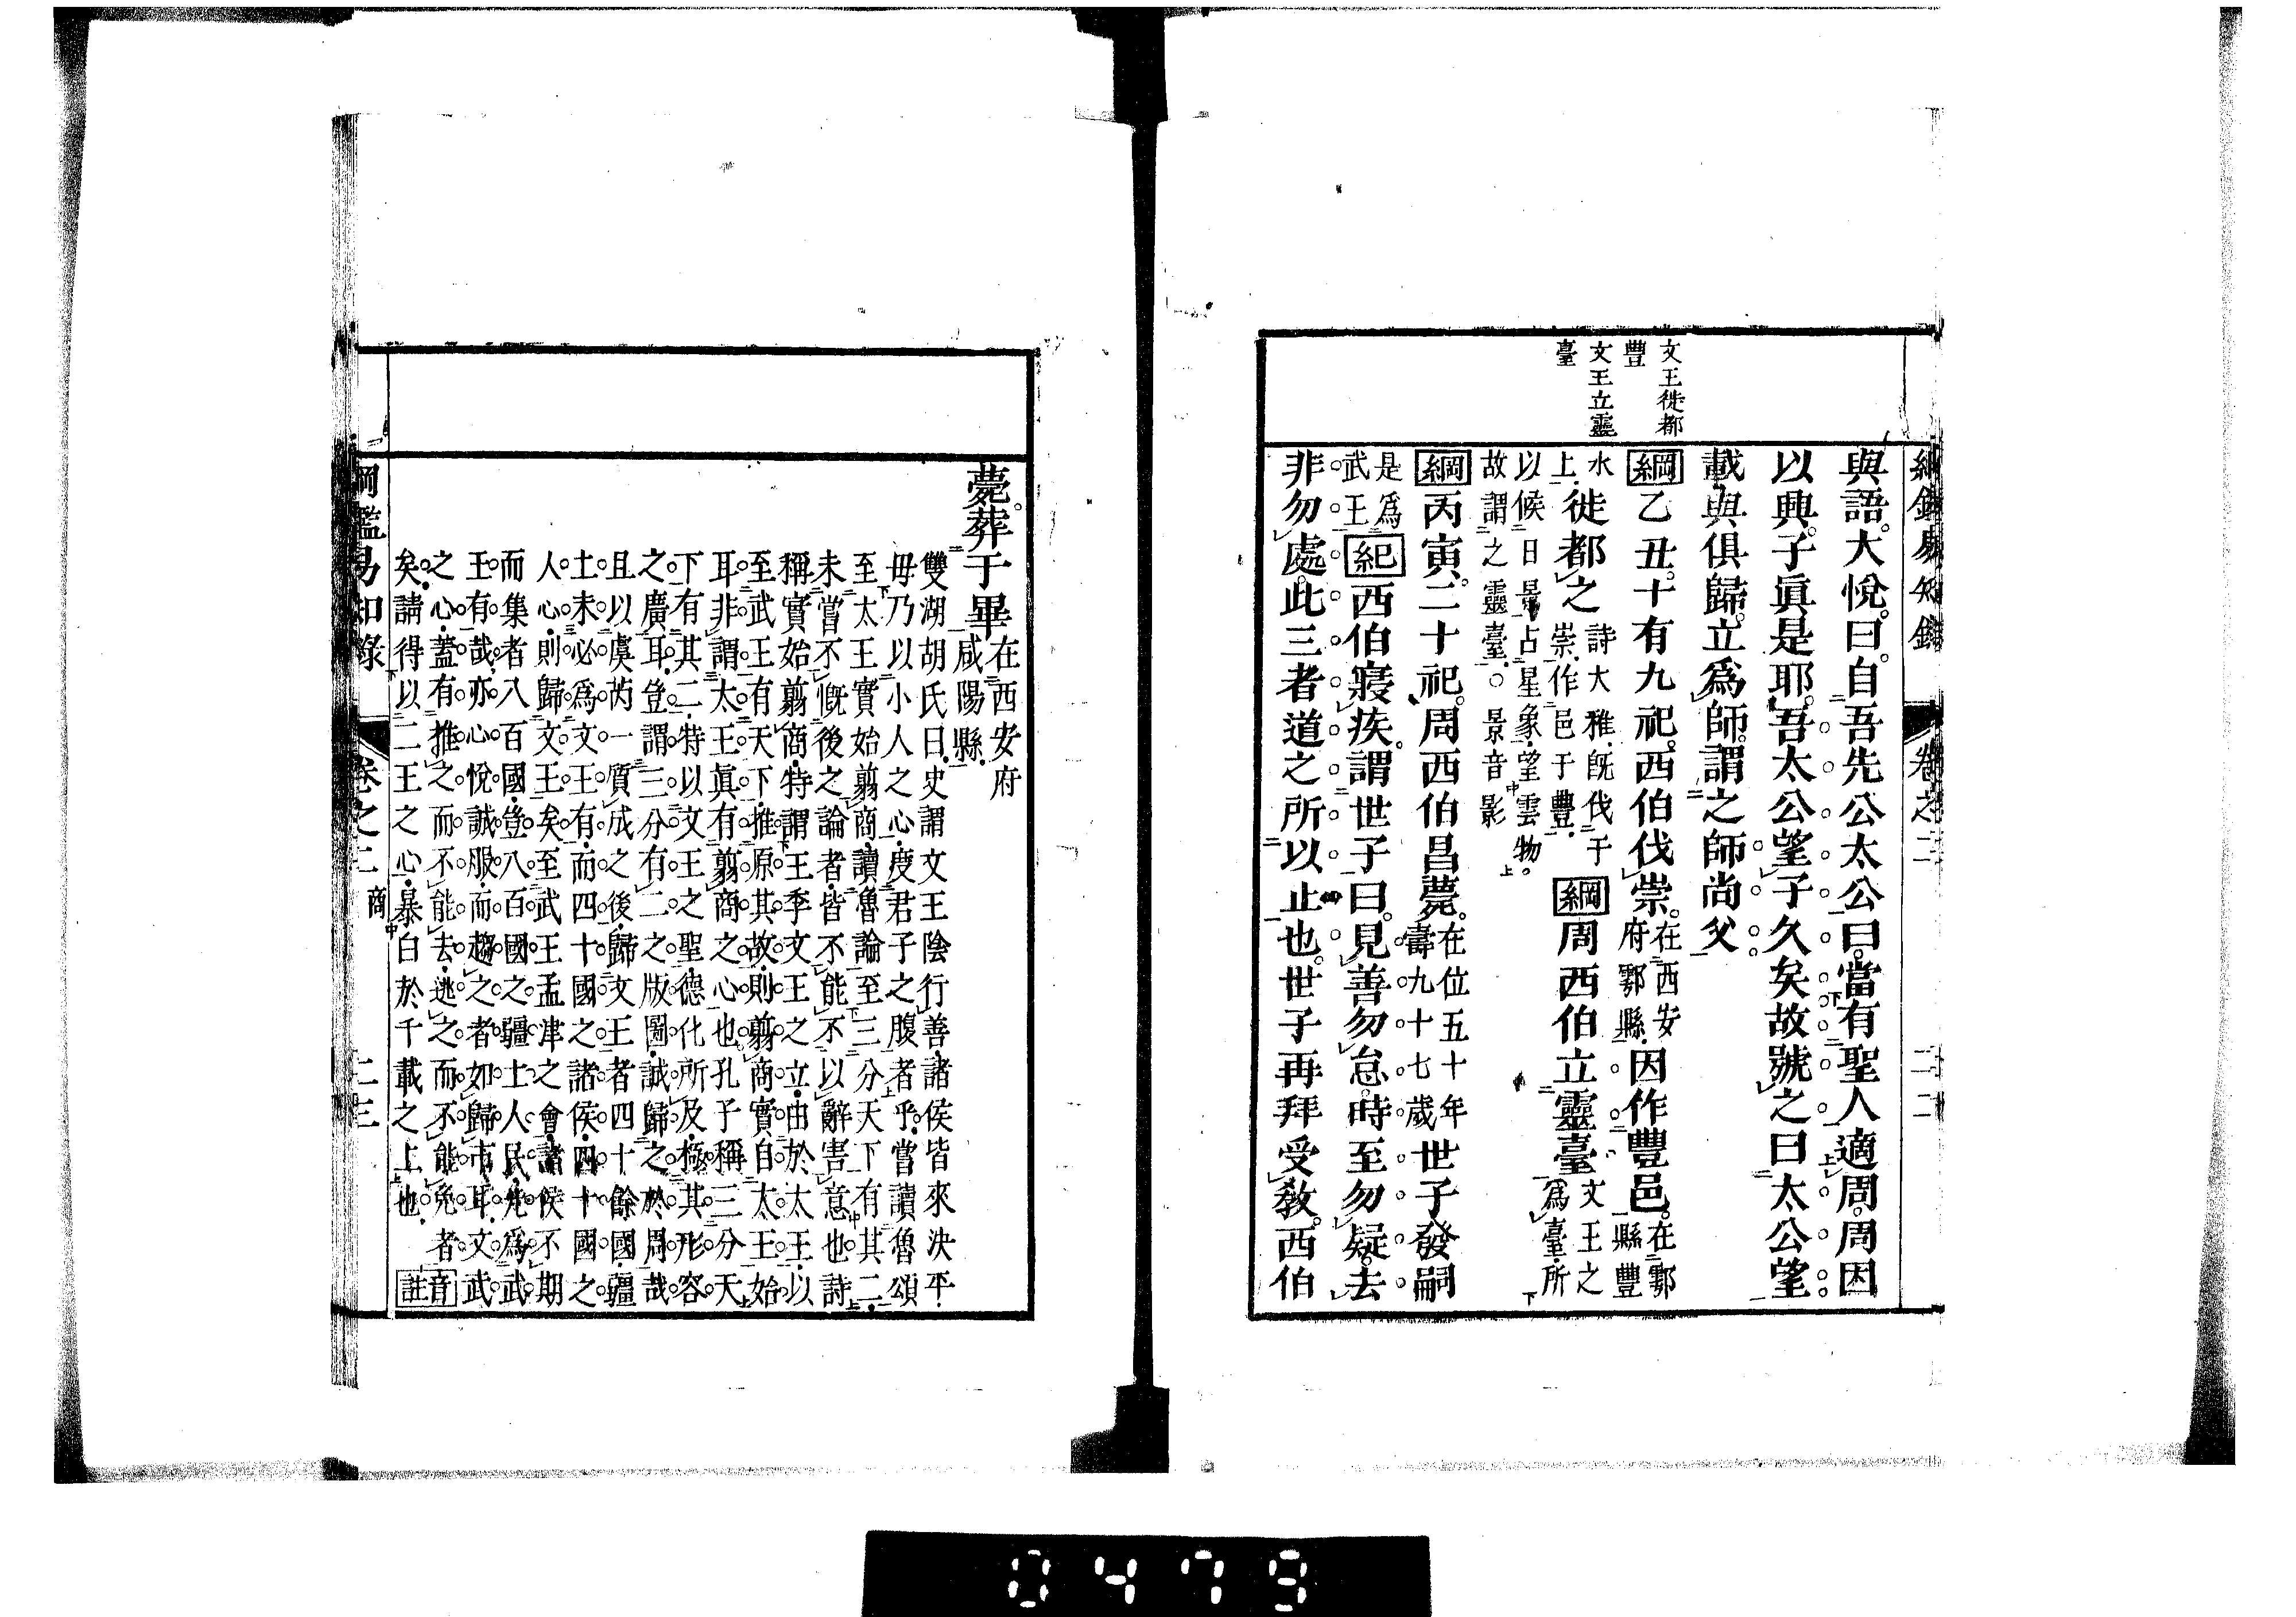 綱鑑易知錄 卷之二 二十二
文王徙都
豐
文王立靈
臺
與語大悅曰自吾先公太公曰當有聖人適周周因
以興子眞是耶吾太公望子久矣故號之曰太公望
載與俱歸立爲師謂之師尚父
綱乙丑十有九祀西伯伐崇在西安府鄠縣因作豐邑在鄠縣豐
水上徙都之詩大雅旣伐于崇作邑于豐綱周西伯立靈臺文王之爲臺所
以候日景占星象望雲物故謂之靈臺○景音影
綱丙寅二十祀周西伯昌薨在位五十年壽九十七歲世子發嗣
是爲武王紀西伯寢疾謂世子曰見善勿怠時至勿疑去
非勿處此三者道之所以止也世子再拜受敎西伯
薨葬于畢在西安府咸陽縣
雙湖胡氏曰史謂文王陰行善諸侯皆來決平
毋乃以小人之心度君子之腹者乎嘗讀魯頌
至太王實始翦商讀魯論至三分天下有其二
未嘗不慨後之論者皆不能不以辭害意也詩
稱實始翦商特謂王季文王之立由於太王以
至武王有天下推原其故則翦商實自太王始
耳非謂太王眞有翦商之心也孔子稱三分天
下有其二特以文王之聖德化所及極其形容
之廣耳豈謂三分有二之版圖誠歸之於周哉
且以虞芮一質成之後歸文王者四十餘國疆
土未必爲文王有而四十國之諸侯四十國之
人心則歸文王矣至武王孟津之會諸侯不期
而集者八百國豈八百國之疆土人民先爲武
王有哉亦心悅誠服而趨之者如歸市耳文武
之心蓋有推之而不能去逃之而不能免者
矣請得以二王之心暴白於千載之上也 音註
綱鑑易知錄 卷之二 商 二十三
0479